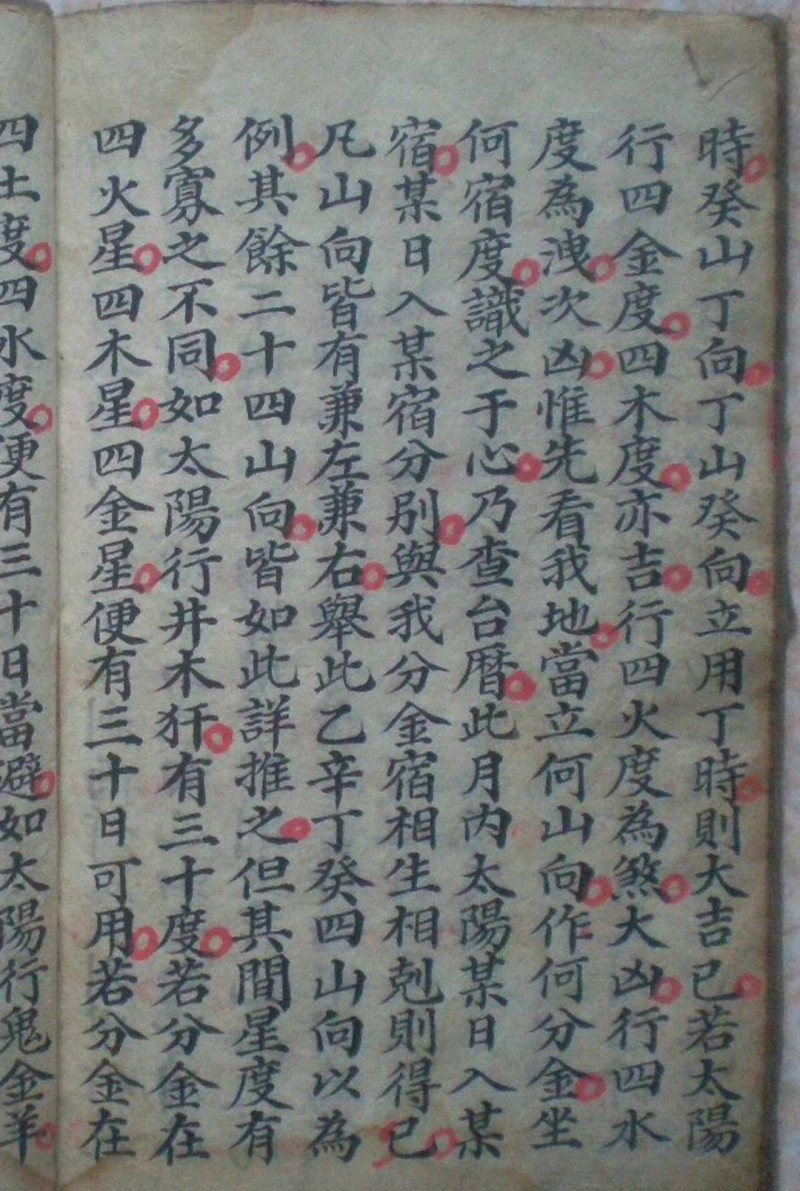 時癸山丁向丁山癸向立用丁時則大吉已若太陽
行四金度四木度亦吉行四火度為煞大凶行四水
度為洩次凶惟先看我地當立何山向作何分金坐
何宿度識之于心乃查台曆此月内太陽某日入某
宿某日入某宿分別與我分金宿相生相剋則得已
凡山向皆有兼左兼右舉此乙辛丁癸四山向以為
例其餘二十四山向皆如此詳推之但其間星度有
多寡之不同如太陽行井木犴有三十度若分金在
四火星四木星四金星便有三十日可用若分金在
四土度四水度便有三十日當避如太陽行鬼金羊